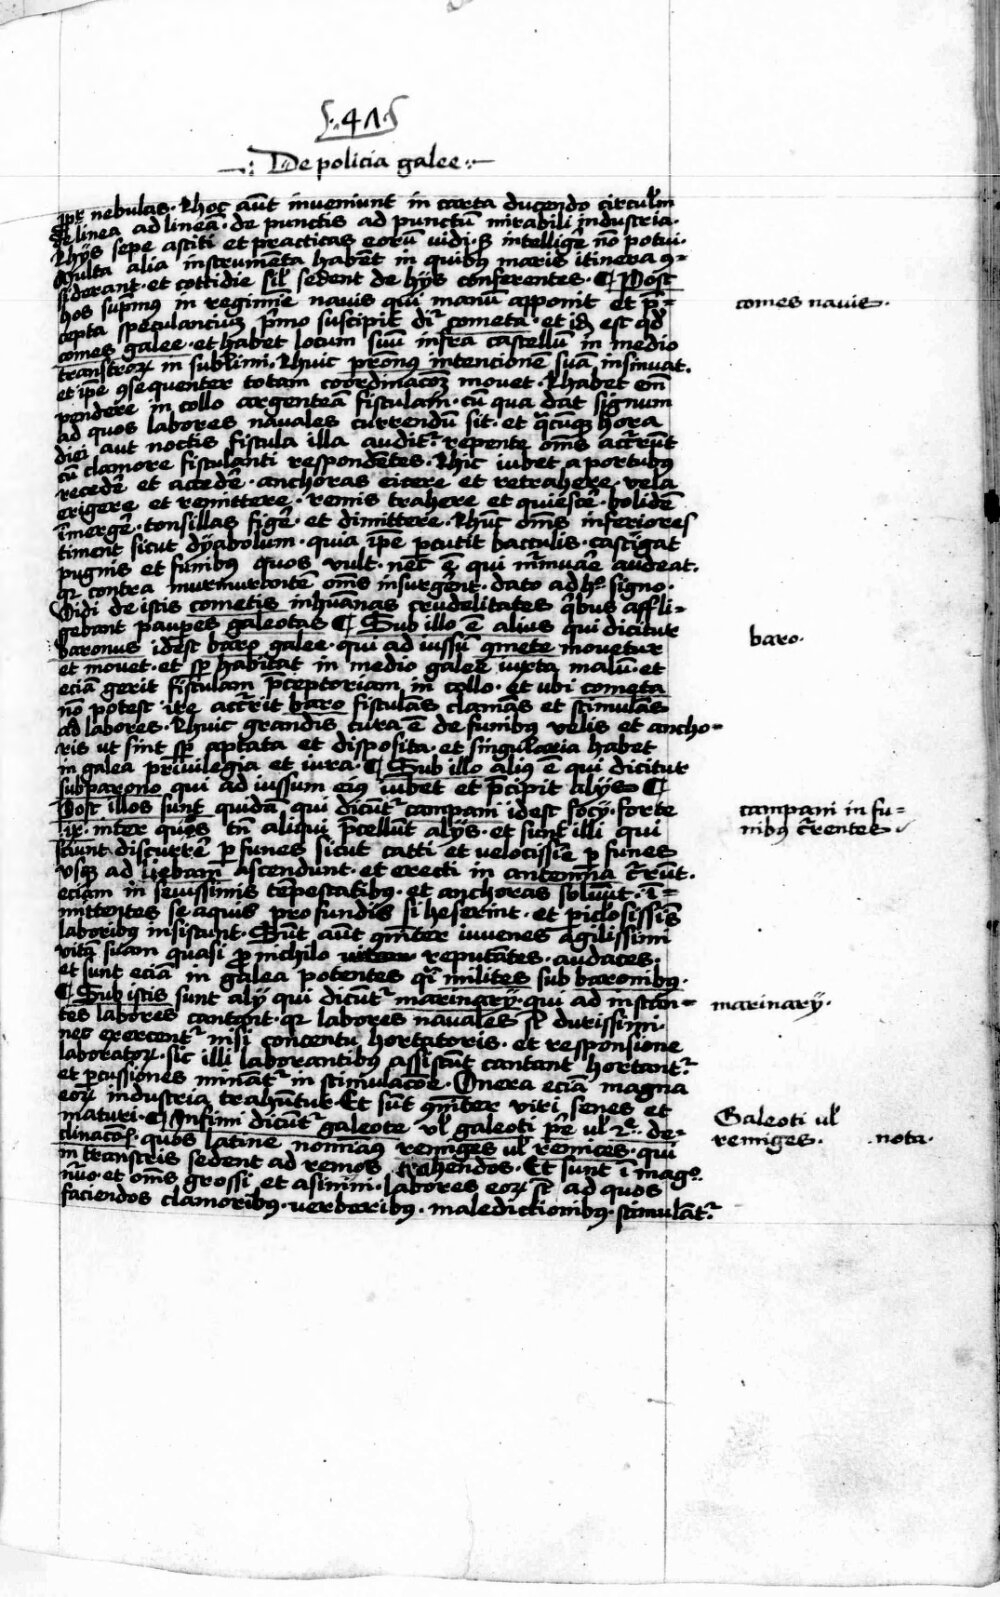 .41.
De policia galee
ipē nebulas. Hoc aūt inveniunt in carta ducendo circulum
de linea ad lineā. de punctis ad punctū mirabili industria.
Hijs sepe astiti et practicas eorū vidi. sꝫ intelligē nō potui.
Multa alia instrumēta habēt in quibus maris itinera ꝯ-
siderant. et cottidie sīl sedent de hijs conferentes. ¶ Post
hos supmus in regimīe navis qui manū apponit et p̄-
cepta speculanciuꝫ p̄mo suscipit dīr cometa. et id est qd
comes galee. et habet locum suū infra castellū in medio
transtroꝝ in sublimi. Huic pronus intencionē suā insinuat.
et ipe ꝯsequenter totam coordinacōꝫ movet. Habet em̄
pendere in collo argenteā fistulam. cū qua dat signum
ad quos labores navales currendū sit. et qcūqꝫ hora
diei aut noctis fistula illa auditʳ. repente om̄s accrūt
cū clamore fistulanti respondētes. Hic iubet a portubus
recedē et accedē. anchoras eicere et retrahere. vela
erigere et remittere. remis trahere et quiescē. bolidē
īmergē. tonsillas figē. et dimittere. Hūc om̄s inferiores
timent sicut dyabolum. quia ipe pcutit bacculis. castigat
pugnis et funibus quos vult. nec ē qui m̄muāre audeat.
qr contra murmurātē om̄s insurgent. dato ad hᵒ signo.
Vidi de istis cometis inhūanas crudelitates qbus affli-
gebant paupes galeotas ¶ Sub illo ē alius qui dicitur
baronus idest baro galee. qui ad iussū comete movetur
et movet. et sp habitat in medio galee iuxta malū. et
eciā gerit fistulam p̄ceptoriam in collo. et ubi cometa
nō potest ire accrit baro fistulās clamās et stimulās
ad labores. Huic grandis cura ē de funibus velis et ancho-
ris ut sint sp aptata et disposita. et singularia habet
in galea privilegia et iura. ¶ Sub illo alius ē qui dicitur
subparono qui ad iussum eius iubet et p̄cipit alijs ¶
Post illos sunt quidā qui dicūtʳ campani idest socij. forte
.ix. inter quos tn̄ aliqui p̄cellūt alijs. et sunt illi qui
sciunt discurrē p funes sicut catti et velocissīe p funes
usqꝫ ad ascendunt. et erecti in antemna crūt.
eciam in sevissimis tēpestatibus. et anchoras soluūt. ī-
mittentes se aquis profundis si heserint. et piclosissīs
laboribus insistunt. Sūt aūt qmter iuvenes agilissimi
vitā suam quasi p nichilo reputātes. audaces.
et sunt eciā in galea potentes qsi milites sub baronibus.
¶ Sub istis sunt alij qui dicūtʳ marinarij. qui ad instan-
tes labores cantant. qr labores navales st durissimi.
nec exercentʳ nisi concentu hortatoris. et responsione
laboratoꝝ. sic illi laborantibus assistūt cantant hortantʳ
et pcussiones minātʳ in stimulacōe. Onera eciā magna
eoꝝ industria trahūtur. Et sūt qmter viri senes et
maturi. ¶ Infimi dicūtʳ galeote vl galeoti pe vl 2ᵉ. de-
clinacōs. quos latine nominaꝯ remiges vl remices. qui
in transtris sedent ad remos trahendos. Et sunt ī magᵒ
nūo. et om̄s grossi et asinini. labores eoꝝ st ad quos
faciendos clamoribus. verberibus. maledictionibus. stimulātʳ.
comes navis.
baro.
campani in fu-
nibus crentes
marinarij.
Galeoti vl
remiges. nota.